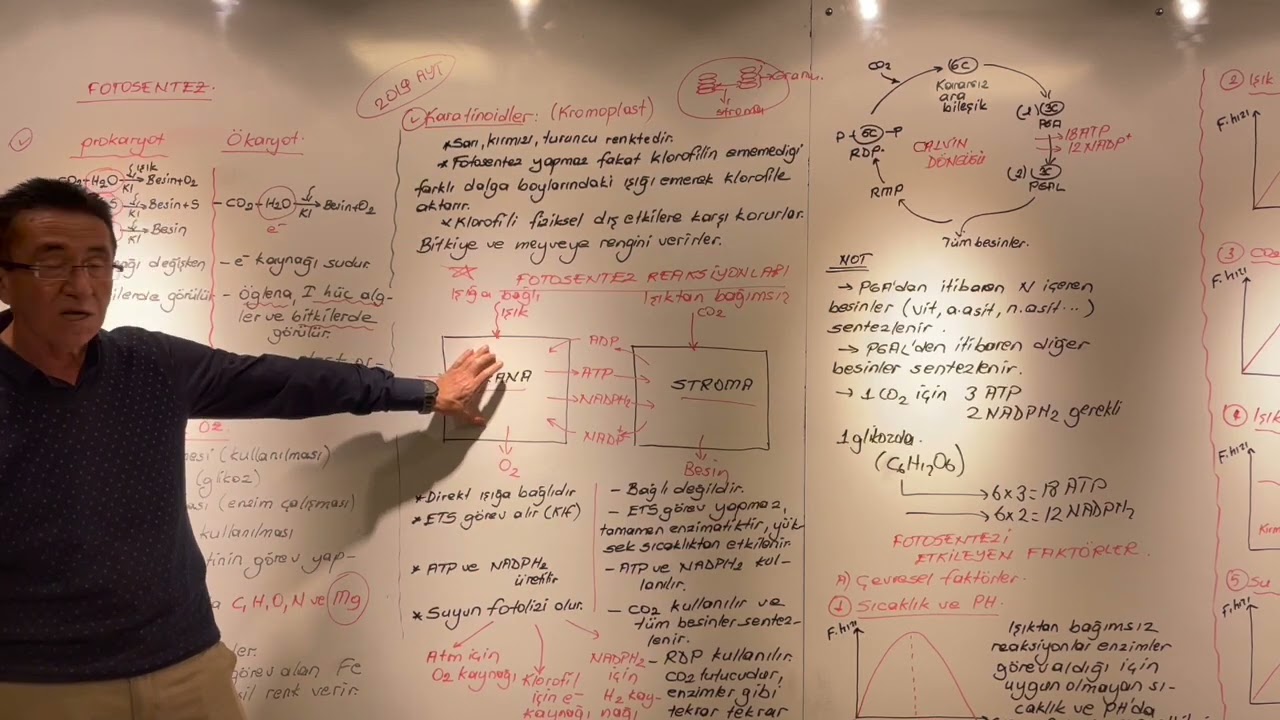 FOTOSENTEZ.
prokaryot
Ökaryot.
CO2+H2O → Besin+O2
Işık
Kl
→ Besin+S
Kl
→ Besin
Kl
değişken
görülür
- CO2+H2O → Besin+O2
Kl
e⁻
- e⁻ kaynağı sudur.
- öğlena, I hüc alg-
ler ve bitkilerde
görülür.
O2.
(kullanılması)
(glikoz)
(enzim çalışması)
kullanılması
görev yap-
C, H, O, N ve Mg
görev alan Fe
renk verir.
2019 AYT
Karatinoidler: (Kromoplast)
granum.
stroma
* Sarı, kırmızı, turuncu renktedir.
* Fotosentez yapmaz fakat klorofilin ememediği
farklı dalga boylarındaki ışığı emerek klorofile
aktarır.
* Klorofili fiziksel dış etkilere karşı korurlar.
Bitkiye ve meyveye rengini verirler.
FOTOSENTEZ REAKSİYONLARI
Işığa bağlı
Işıktan bağımsız
Işık
CO2
ADP
ATP
NADPH2
NADP
STROMA
O2
Besin
* Direkt ışığa bağlıdır
* ETS görev alır (Klf)
* ATP ve NADPH2
üretilir
* Suyun fotolizi olur.
Atm için
O2 kaynağı
Klorofil
için e⁻
kaynağı
NADPH2
için
H2 kay-
nağı
- Bağlı değildir.
- ETS görev yapmaz,
tamamen enzimatiktir, yük-
sek sıcaklıktan etkilenir
- ATP ve NADPH2 kul-
lanılır.
- CO2 kullanılır ve
tüm besinler sentez-
lenir.
- RDP kullanılır.
CO2 tutucudur,
enzimler gibi
tekrar tekrar
CO2
6C
Kararsız
ara
bileşik
(2) 3C
PGA
18 ATP
12 NADP⁺
(2) 3C
PGAL
P-5C-P
RDP.
CALVIN
DÖNGÜSÜ
RMP
Tüm besinler.
NOT
→ PGA'dan itibaren N içeren
besinler (vit, a.asit, n.asit...)
sentezlenir.
→ PGAL'den itibaren diğer
besinler sentezlenir.
→ 1 CO2 için 3 ATP
2 NADPH2 gerekli
1 glikozda.
(C6H12O6)
→ 6x3=18 ATP
→ 6x2=12 NADPH2
FOTOSENTEZİ
ETKİLEYEN FAKTÖRLER.
A) Çevresel faktörler.
1 Sıcaklık ve PH.
F.hızı
Işıktan bağımsız
reaksiyonlar enzimler
görev aldığı için
uygun olmayan sı-
caklık ve PH'da
2 Işık
F.hızı
3
F.hızı
4 Işık
F.hızı
5 Su
F.hızı